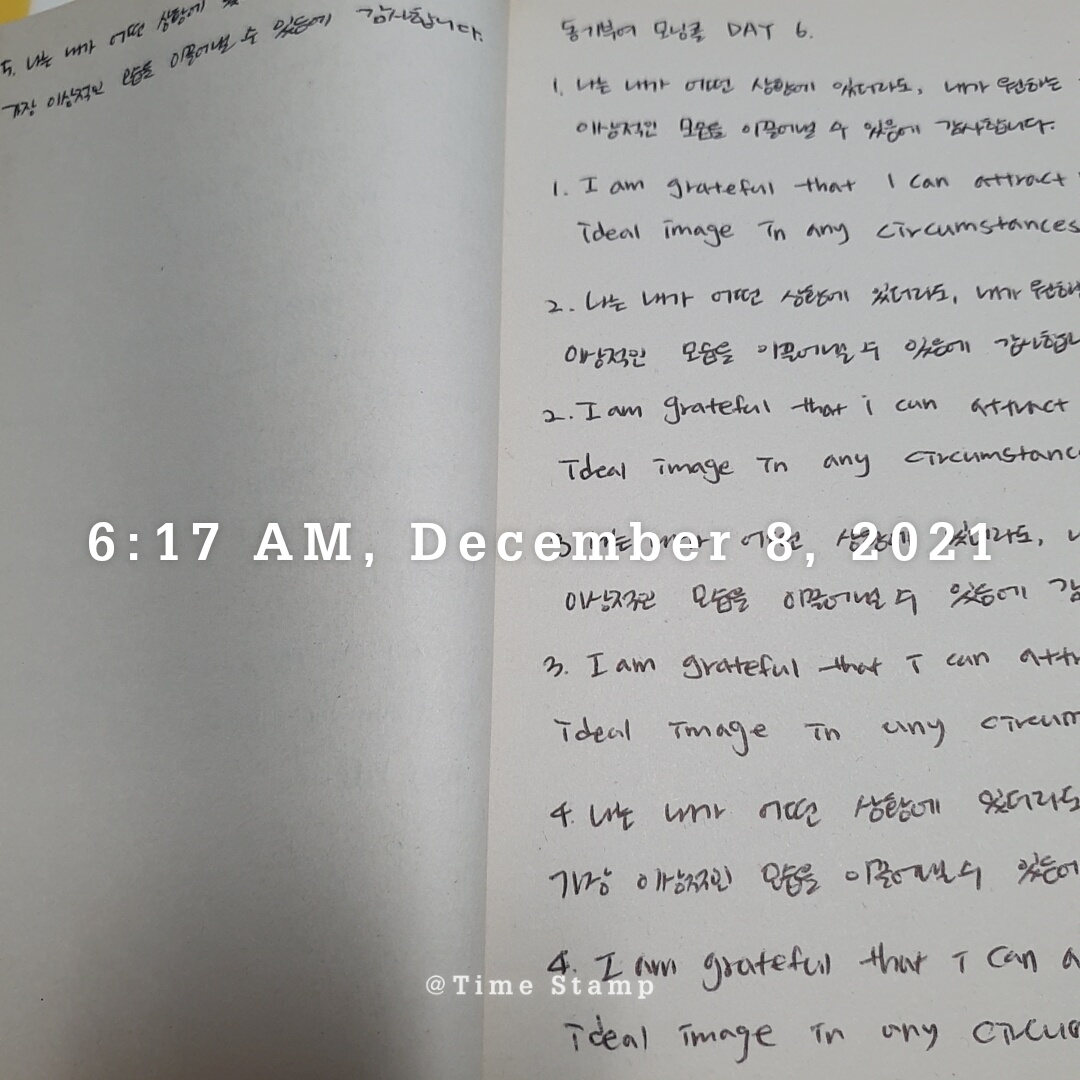 5. 나는 내가 어떤 상황에
가장 이상적인 모습을 이끌어낼 수 있음에 감사합니다.
동기부여 모닝콜 DAY 6.
1. 나는 내가 어떤 상황에 있더라도, 내가 원하는
이상적인 모습을 이끌어낼 수 있음에 감사합니다.
1. I am grateful that I can attract
ideal image in any circumstances
2. 나는 내가 어떤 상황에 있더라도, 내가 원하는
이상적인 모습을 이끌어낼 수 있음에 감사합니
2. I am grateful that i can attract
ideal image in any circumstanc
6:17 AM, December 8, 2021
3. 나는 내가 어떤 상황에 있더라도,
이상적인 모습을 이끌어낼 수 있음에 감
3. I am grateful that I can attr
ideal image in any circum
4. 나는 내가 어떤 상황에 있더라도
가장 이상적인 모습을 이끌어낼 수 있음에
4. I am grateful that I can a
@Time Stamp
ideal image in any circum